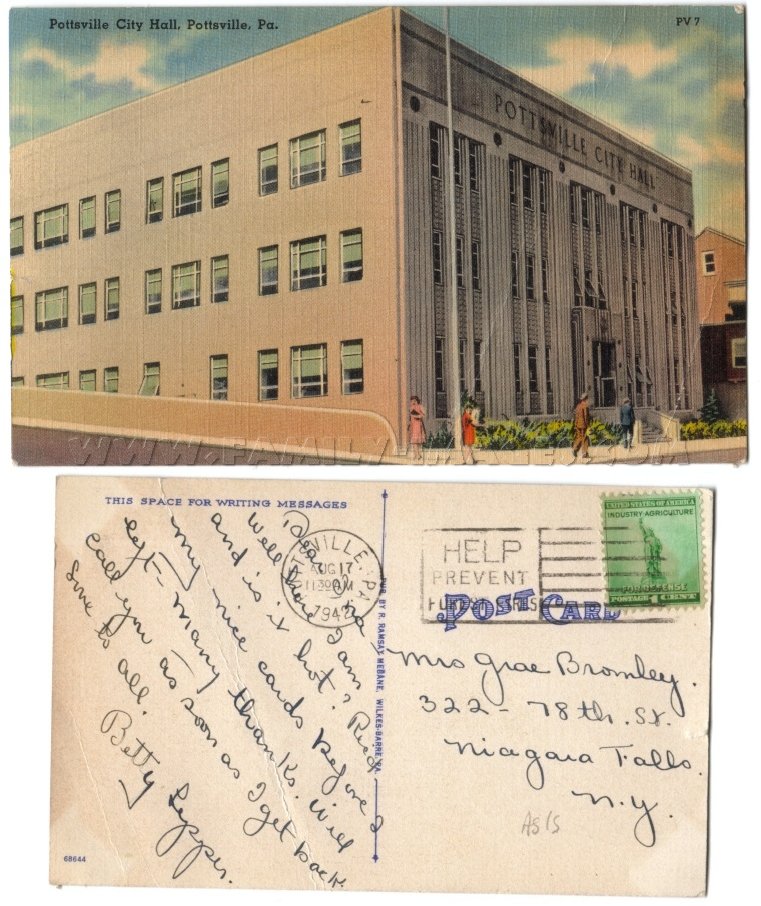 Pottsville City Hall, Pottsville, Pa.
PV 7
POTTSVILLE CITY HALL
WWW.FAMILY-IMAGES.COM
THIS SPACE FOR WRITING MESSAGES
Dear
Well here I am
and is it hot? Recd
my nice cards before I
left - many thanks. Will
call you as soon as I get back
love to all.
Betty Lepper.
68644
PUB. BY R. RAMSAY MEBANE, WILKES-BARRE, PA.
POTTSVILLE, PA.
AUG 17
11 30 AM
1942
HELP
PREVENT
FOREST FIRES
UNITED STATES OF AMERICA
INDUSTRY-AGRICULTURE
FOR DEFENSE
POSTAGE 1 CENT
POST CARD
Mrs Grae Bromley.
322 - 78th. St.
Niagara Falls.
N.Y.
As Is